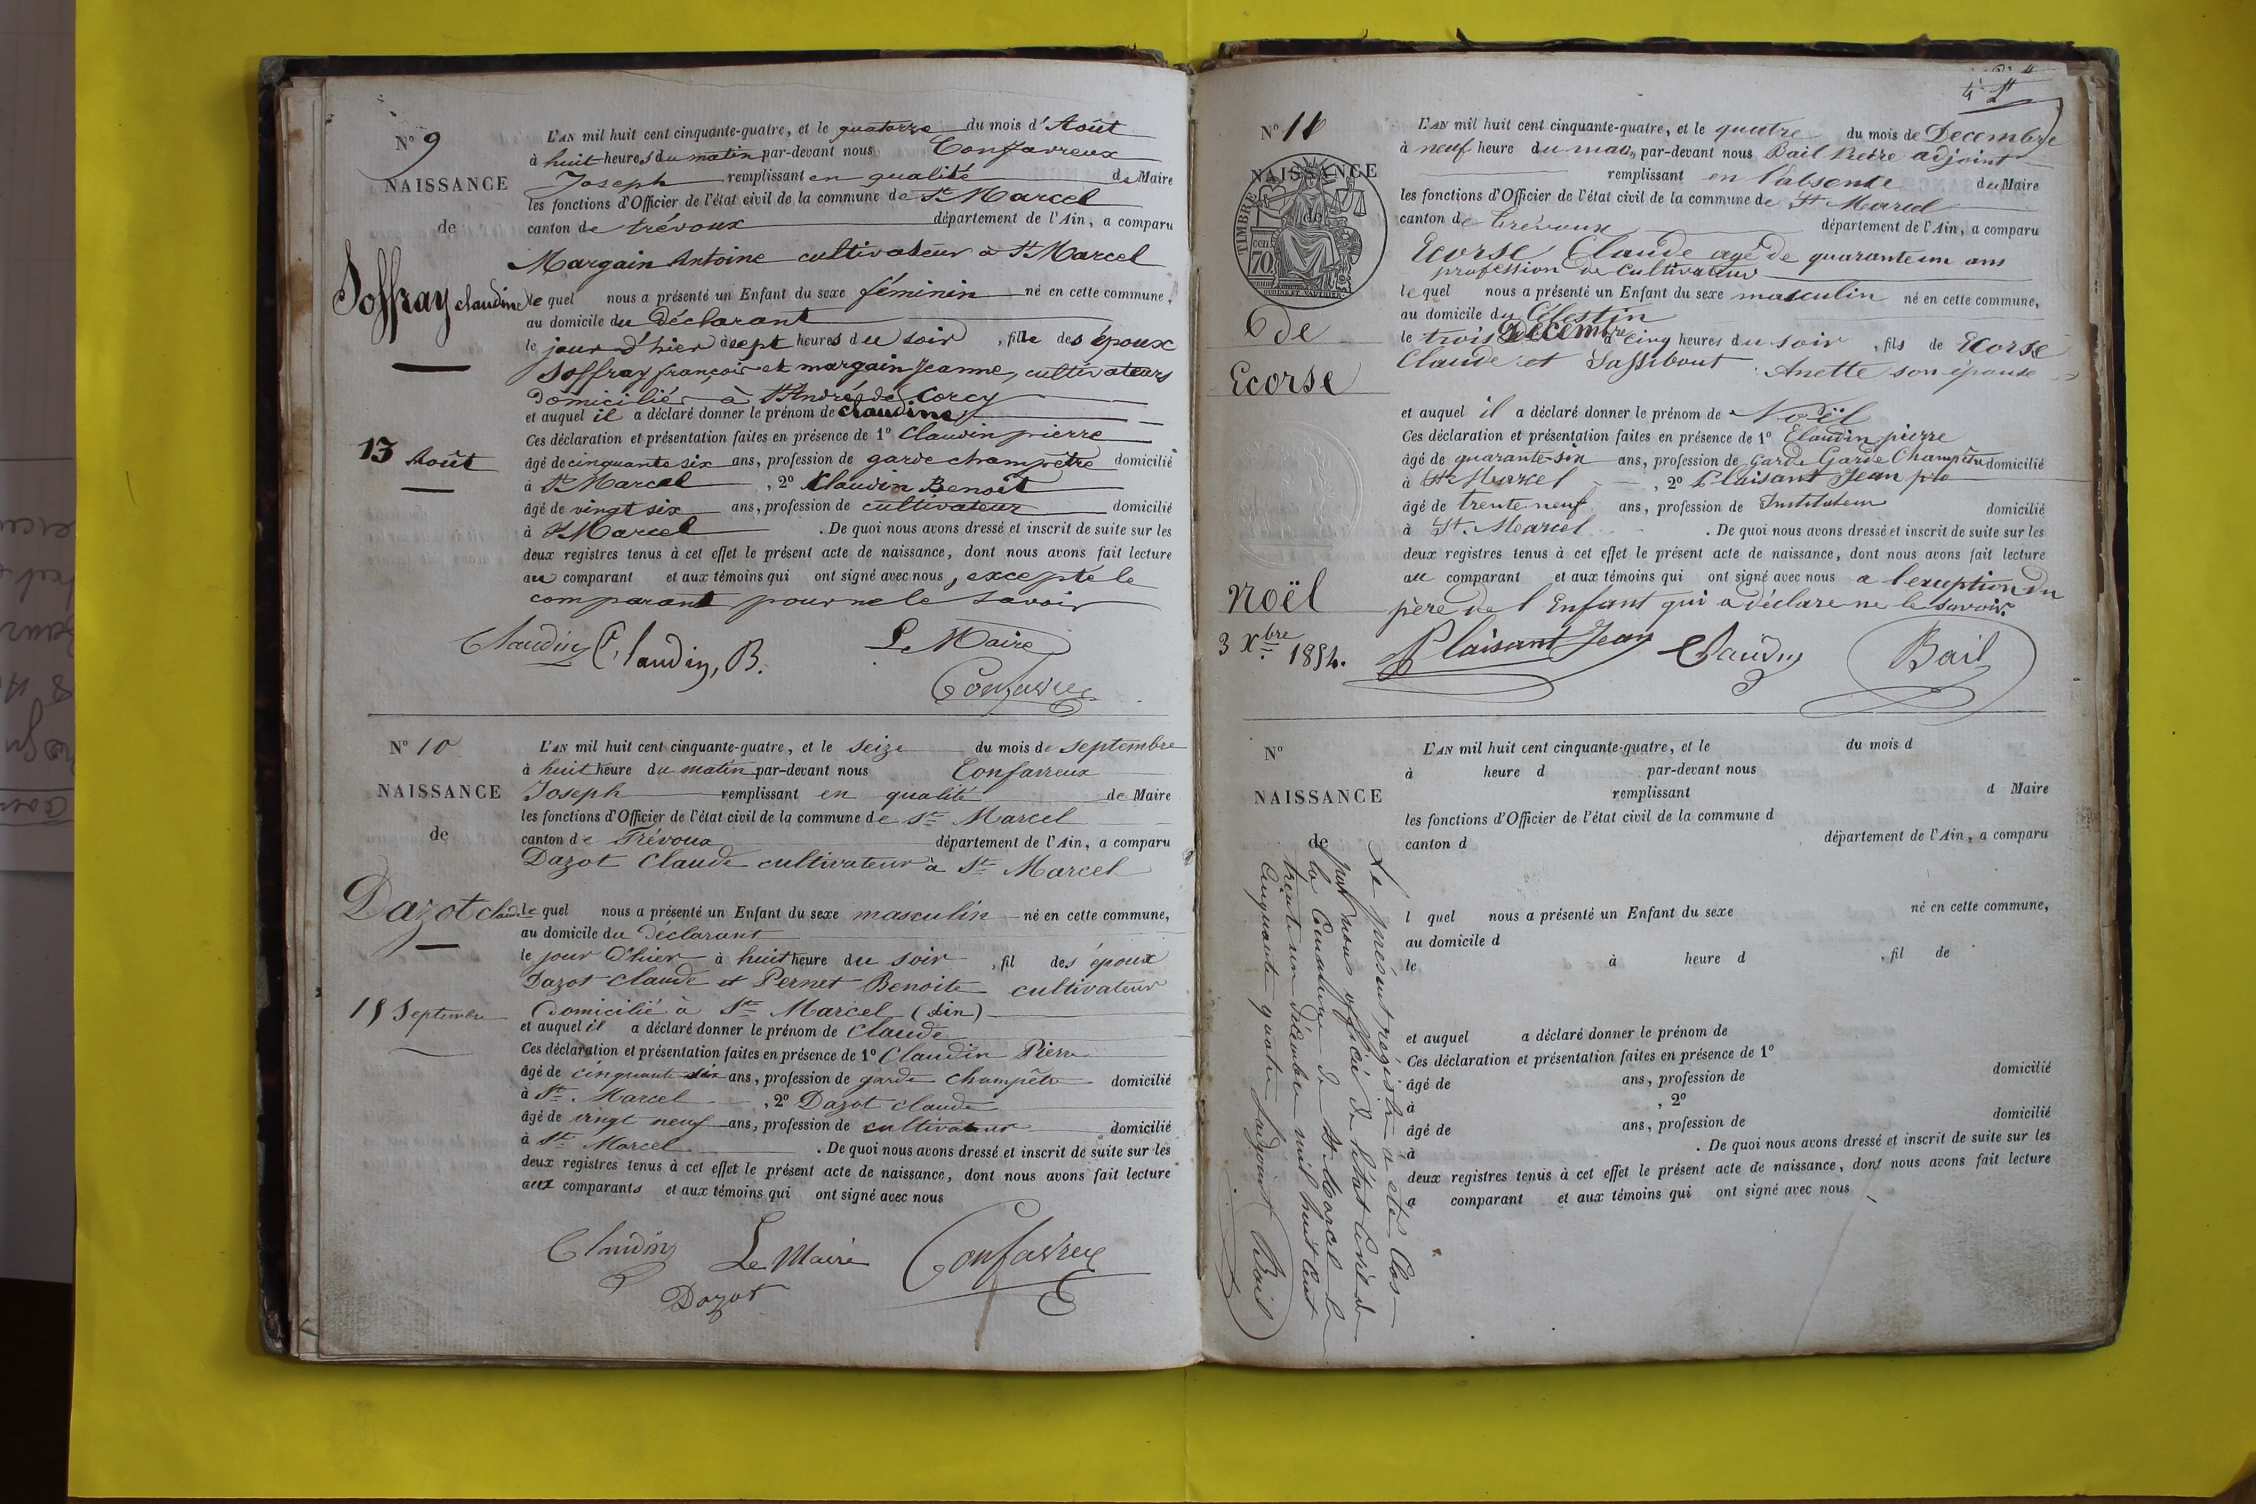 N° 9
NAISSANCE
de
Soffray claudine
13 Août
L'AN mil huit cent cinquante-quatre, et le quatorze du mois d'Août
à huit heures du matin par-devant nous Confavreux
Joseph remplissant en qualité de Maire
les fonctions d'Officier de l'état civil de la commune de St Marcel
canton de trévoux département de l'Ain, a comparu
Margain Antoine cultivateur à St Marcel
le quel nous a présenté un Enfant du sexe féminin né en cette commune,
au domicile du Déclarant
le jour d'hier à sept heures du soir, fille des époux
Soffray françois et margain Jeanne, cultivateurs
domiciliés à St André de Corcy
et auquel il a déclaré donner le prénom de claudine
Ces déclaration et présentation faites en présence de 1° Claudin pierre
âgé de cinquante six ans, profession de garde champêtre domicilié
à St Marcel, 2° Claudin Benoît
âgé de vingt six ans, profession de cultivateur domicilié
à St Marcel. De quoi nous avons dressé et inscrit de suite sur les
deux registres tenus à cet effet le présent acte de naissance, dont nous avons fait lecture
au comparant et aux témoins qui ont signé avec nous, excepté le
comparant pour ne le savoir
Claudin Claudin, B. Le Maire
Confavreux
N° 10
NAISSANCE
de
Dazot claude
15 Septembre
L'AN mil huit cent cinquante-quatre, et le seize du mois de septembre
à huit heure du matin par-devant nous Confavreux
Joseph remplissant en qualité de Maire
les fonctions d'Officier de l'état civil de la commune de St Marcel
canton de Trévoux département de l'Ain, a comparu
Dazot Claude cultivateur à St Marcel
le quel nous a présenté un Enfant du sexe masculin né en cette commune,
au domicile du déclarant
le jour D'hier à huit heure du soir, fil des époux
Dazot claude et Pernet Benoite cultivateur
Domicilié à St Marcel (Ain)
et auquel il a déclaré donner le prénom de Claude
Ces déclaration et présentation faites en présence de 1° Claudin Pierre
âgé de cinquante six ans, profession de garde champêtre domicilié
à St Marcel, 2° Dazot claude
âgé de vingt neuf ans, profession de cultivateur domicilié
à St Marcel. De quoi nous avons dressé et inscrit de suite sur les
deux registres tenus à cet effet le présent acte de naissance, dont nous avons fait lecture
aux comparants et aux témoins qui ont signé avec nous
Claudin Le Maire Confavreux
Dazot
N° 11
NAISSANCE
de
TIMBRE
70
6 de
Ecorse
Noël
3 Xbre 1854.
L'AN mil huit cent cinquante-quatre, et le quatre du mois de Decembre
à neuf heure du matin par-devant nous Bail Pierre adjoint
remplissant en l'absence du Maire
les fonctions d'Officier de l'état civil de la commune de St Marcel
canton de Trévoux département de l'Ain, a comparu
Ecorse Claude agé de quarante un ans
profession de Cultivateur
le quel nous a présenté un Enfant du sexe masculin né en cette commune,
au domicile du Célestin
le trois Décembre à cinq heures du soir, fils de Ecorse
Claude et Anette son épouse
et auquel il a déclaré donner le prénom de Noël
Ces déclaration et présentation faites en présence de 1° Claudin pierre
âgé de quarante-six ans, profession de Garde Garde Champêtre domicilié
à St Marcel, 2° Plaisant Jean
âgé de trente neuf ans, profession de Instituteur domicilié
à St Marcel. De quoi nous avons dressé et inscrit de suite sur les
deux registres tenus à cet effet le présent acte de naissance, dont nous avons fait lecture
au comparant et aux témoins qui ont signé avec nous a l'exeption du
père de l'Enfant qui a déclaré ne le savoir.
Plaisant Jean Claudin Bail
N°
NAISSANCE
de
L'AN mil huit cent cinquante-quatre, et le du mois d
à heure d par-devant nous
remplissant d Maire
les fonctions d'Officier de l'état civil de la commune d
canton d département de l'Ain, a comparu
l quel nous a présenté un Enfant du sexe né en cette commune,
au domicile d
le à heure d, fil de
et auquel a déclaré donner le prénom de
Ces déclaration et présentation faites en présence de 1°
âgé de ans, profession de domicilié
à, 2°
âgé de ans, profession de domicilié
à. De quoi nous avons dressé et inscrit de suite sur les
deux registres tenus à cet effet le présent acte de naissance, dont nous avons fait lecture
a comparant et aux témoins qui ont signé avec nous
Le présent régistre a été Clos
par nous officier de l'état Civil de
la Commune de St Marcel le
trente un décembre mil huit cent
Cinquante quatre L'adjoint Bail